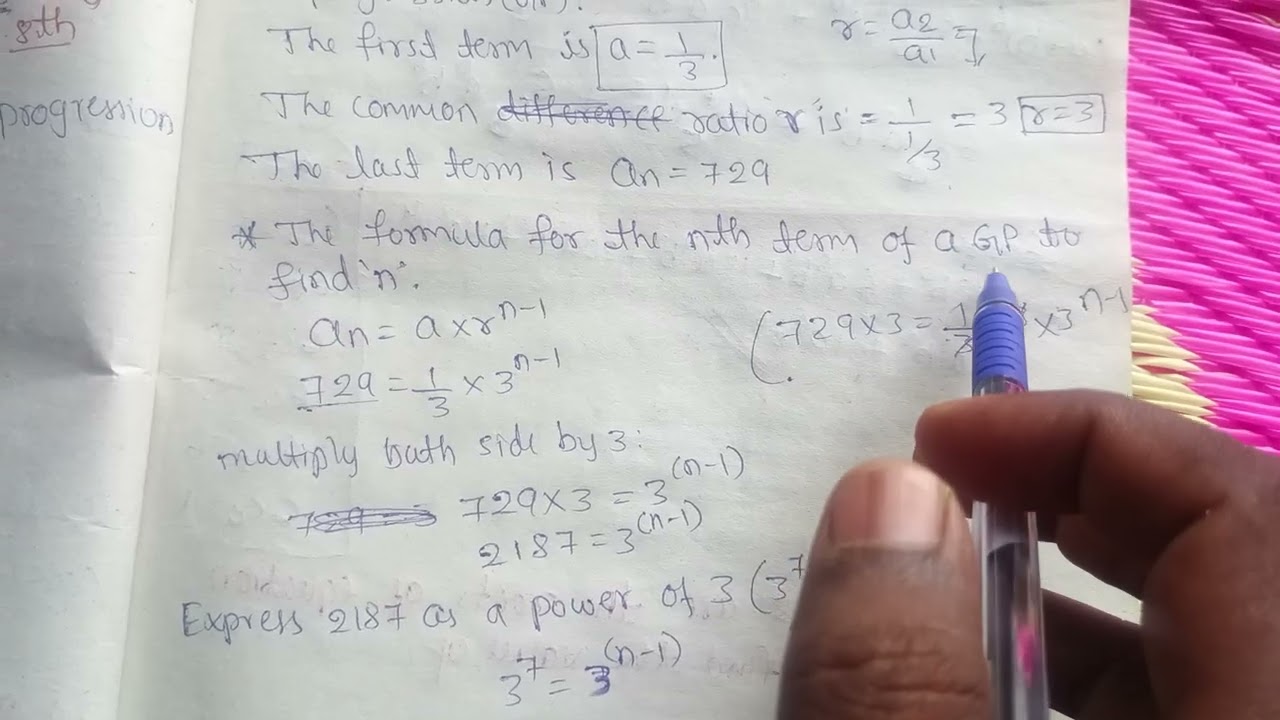 8th
progression
r = a2/a1
The first term is a = 1/3.
The common difference ratio r is = 1/1/3 = 3 r=3
The last term is an = 729
* The formula for the nth term of a GP to
find 'n'.
an = a x r^n-1
729 = 1/3 x 3^n-1
(729x3 = x3^n-1
multiply bath side by 3:
729x3 = 3^(n-1)
2187 = 3^(n-1)
Express 2187 as a power of 3 (3^7
3^7 = 3^(n-1)